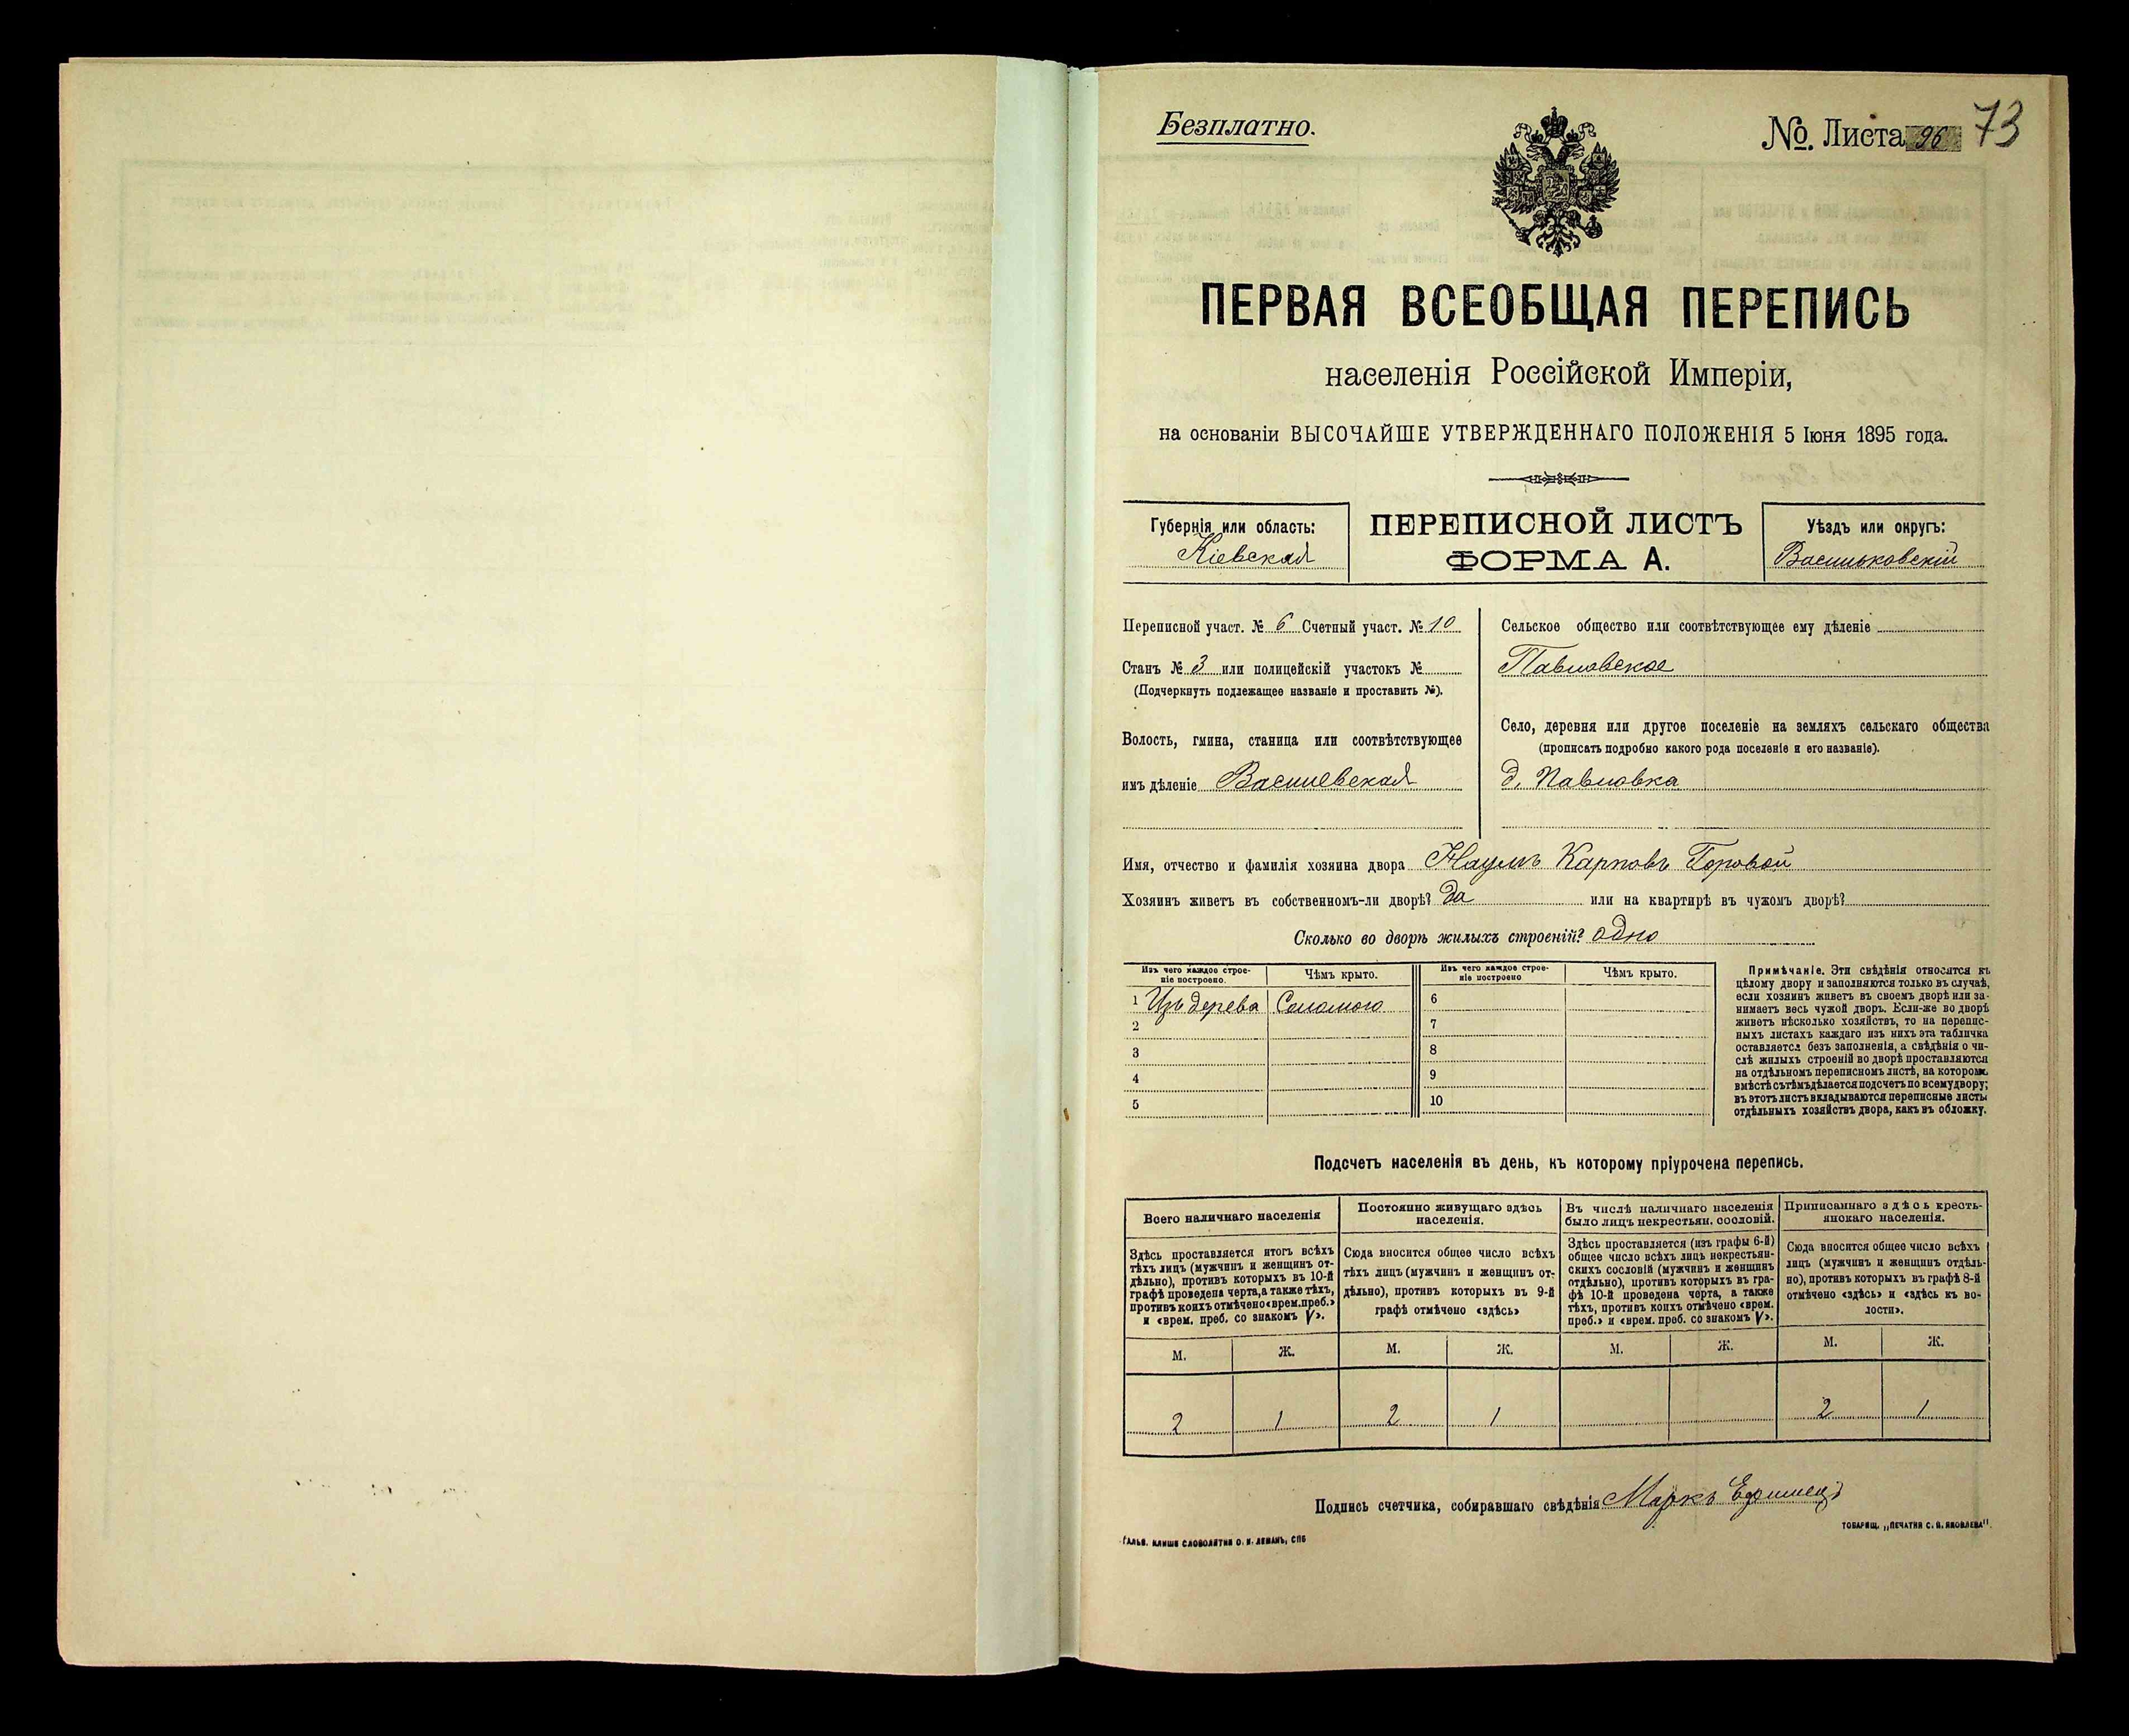 Безплатно.
№. Листа 96 73
ПЕРВАЯ ВСЕОБЩАЯ ПЕРЕПИСЬ
населенія Россійской Имперіи,
на основаніи ВЫСОЧАЙШЕ УТВЕРЖДЕННАГО ПОЛОЖЕНІЯ 5 Іюня 1895 года.
Губернія или область:
Кіевская
ПЕРЕПИСНОЙ ЛИСТЪ
ФОРМА А.
Уѣздъ или округъ:
Васильковскій
Переписной участ. № 6 Счетный участ. № 10
Станъ № 3 или полицейскій участокъ №
(Подчеркнуть подлежащее названіе и проставить №).
Волость, гмина, станица или соотвѣтствующее
имъ дѣленіе Василевская
Сельское общество или соотвѣтствующее ему дѣленіе
Павловское
Село, деревня или другое поселеніе на земляхъ сельскаго общества
(прописать подробно какого рода поселеніе и его названіе).
д. Павловка
Имя, отчество и фамилія хозяина двора Наумъ Карповъ Горовой
Хозяинъ живетъ въ собственномъ-ли дворѣ? да или на квартирѣ въ чужомъ дворѣ?
Сколько во дворѣ жилыхъ строеній? одно
Изъ чего каждое строе-
ніе построено.
Чѣмъ крыто.
Изъ чего каждое строе-
ніе построено
Чѣмъ крыто.
1 Изъ дерева Соломою 6
2 7
3 8
4 9
5 10
Примѣчаніе. Эти свѣдѣнія относятся къ
цѣлому двору и заполняются только въ случаѣ,
если хозяинъ живетъ въ своемъ дворѣ или за-
нимаетъ весь чужой дворъ. Если-же во дворѣ
живетъ нѣсколько хозяйствъ, то на перепис-
ныхъ листахъ каждаго изъ нихъ эта табличка
оставляется безъ заполненія, а свѣдѣнія о чи-
слѣ жилыхъ строеній во дворѣ проставляются
на отдѣльномъ переписномъ листѣ, на которомъ
вмѣстѣ съ тѣмъ дѣлается подсчетъ по всему двору;
въ этотъ листъ вкладываются переписные листы
отдѣльныхъ хозяйствъ двора, какъ въ обложку.
Подсчетъ населенія въ день, къ которому пріурочена перепись.
Всего наличнаго населенія
Здѣсь проставляется итогъ всѣхъ
тѣхъ лицъ (мужчинъ и женщинъ от-
дѣльно), противъ которыхъ въ 10-й
графѣ проведена черта, а также тѣхъ,
противъ коихъ отмѣчено «врем. преб.»
и «врем. преб. со знакомъ V».
Постоянно живущаго здѣсь
населенія.
Сюда вносится общее число всѣхъ
тѣхъ лицъ (мужчинъ и женщинъ от-
дѣльно), противъ которыхъ въ 9-й
графѣ отмѣчено «здѣсь»
Въ числѣ наличнаго населенія
было лицъ некрестьян. сословій.
Здѣсь проставляется (изъ графы 6-й)
общее число всѣхъ лицъ некрестьян-
скихъ сословій (мужчинъ и женщинъ
отдѣльно), противъ которыхъ въ гра-
фѣ 10-й проведена черта, а также
тѣхъ, противъ коихъ отмѣчено «врем.
преб.» и «врем. преб. со знакомъ V».
Приписаннаго здѣсь кресть-
янскаго населенія.
Сюда вносится общее число всѣхъ
лицъ (мужчинъ и женщинъ отдѣль-
но), противъ которыхъ въ графѣ 8-й
отмѣчено «здѣсь» и «здѣсь къ во-
лости».
М. Ж. М. Ж. М. Ж. М. Ж.
2 1 2 1 2 1
Подпись счетчика, собиравшаго свѣдѣнія Маркъ
ГАЛЬВ. КЛИШЕ СЛОВОЛИТНИ О. И. ЛЕМАНЪ, СПБ
ТОВАРИЩ. „ПЕЧАТНЯ С. П. ЯКОВЛЕВА".